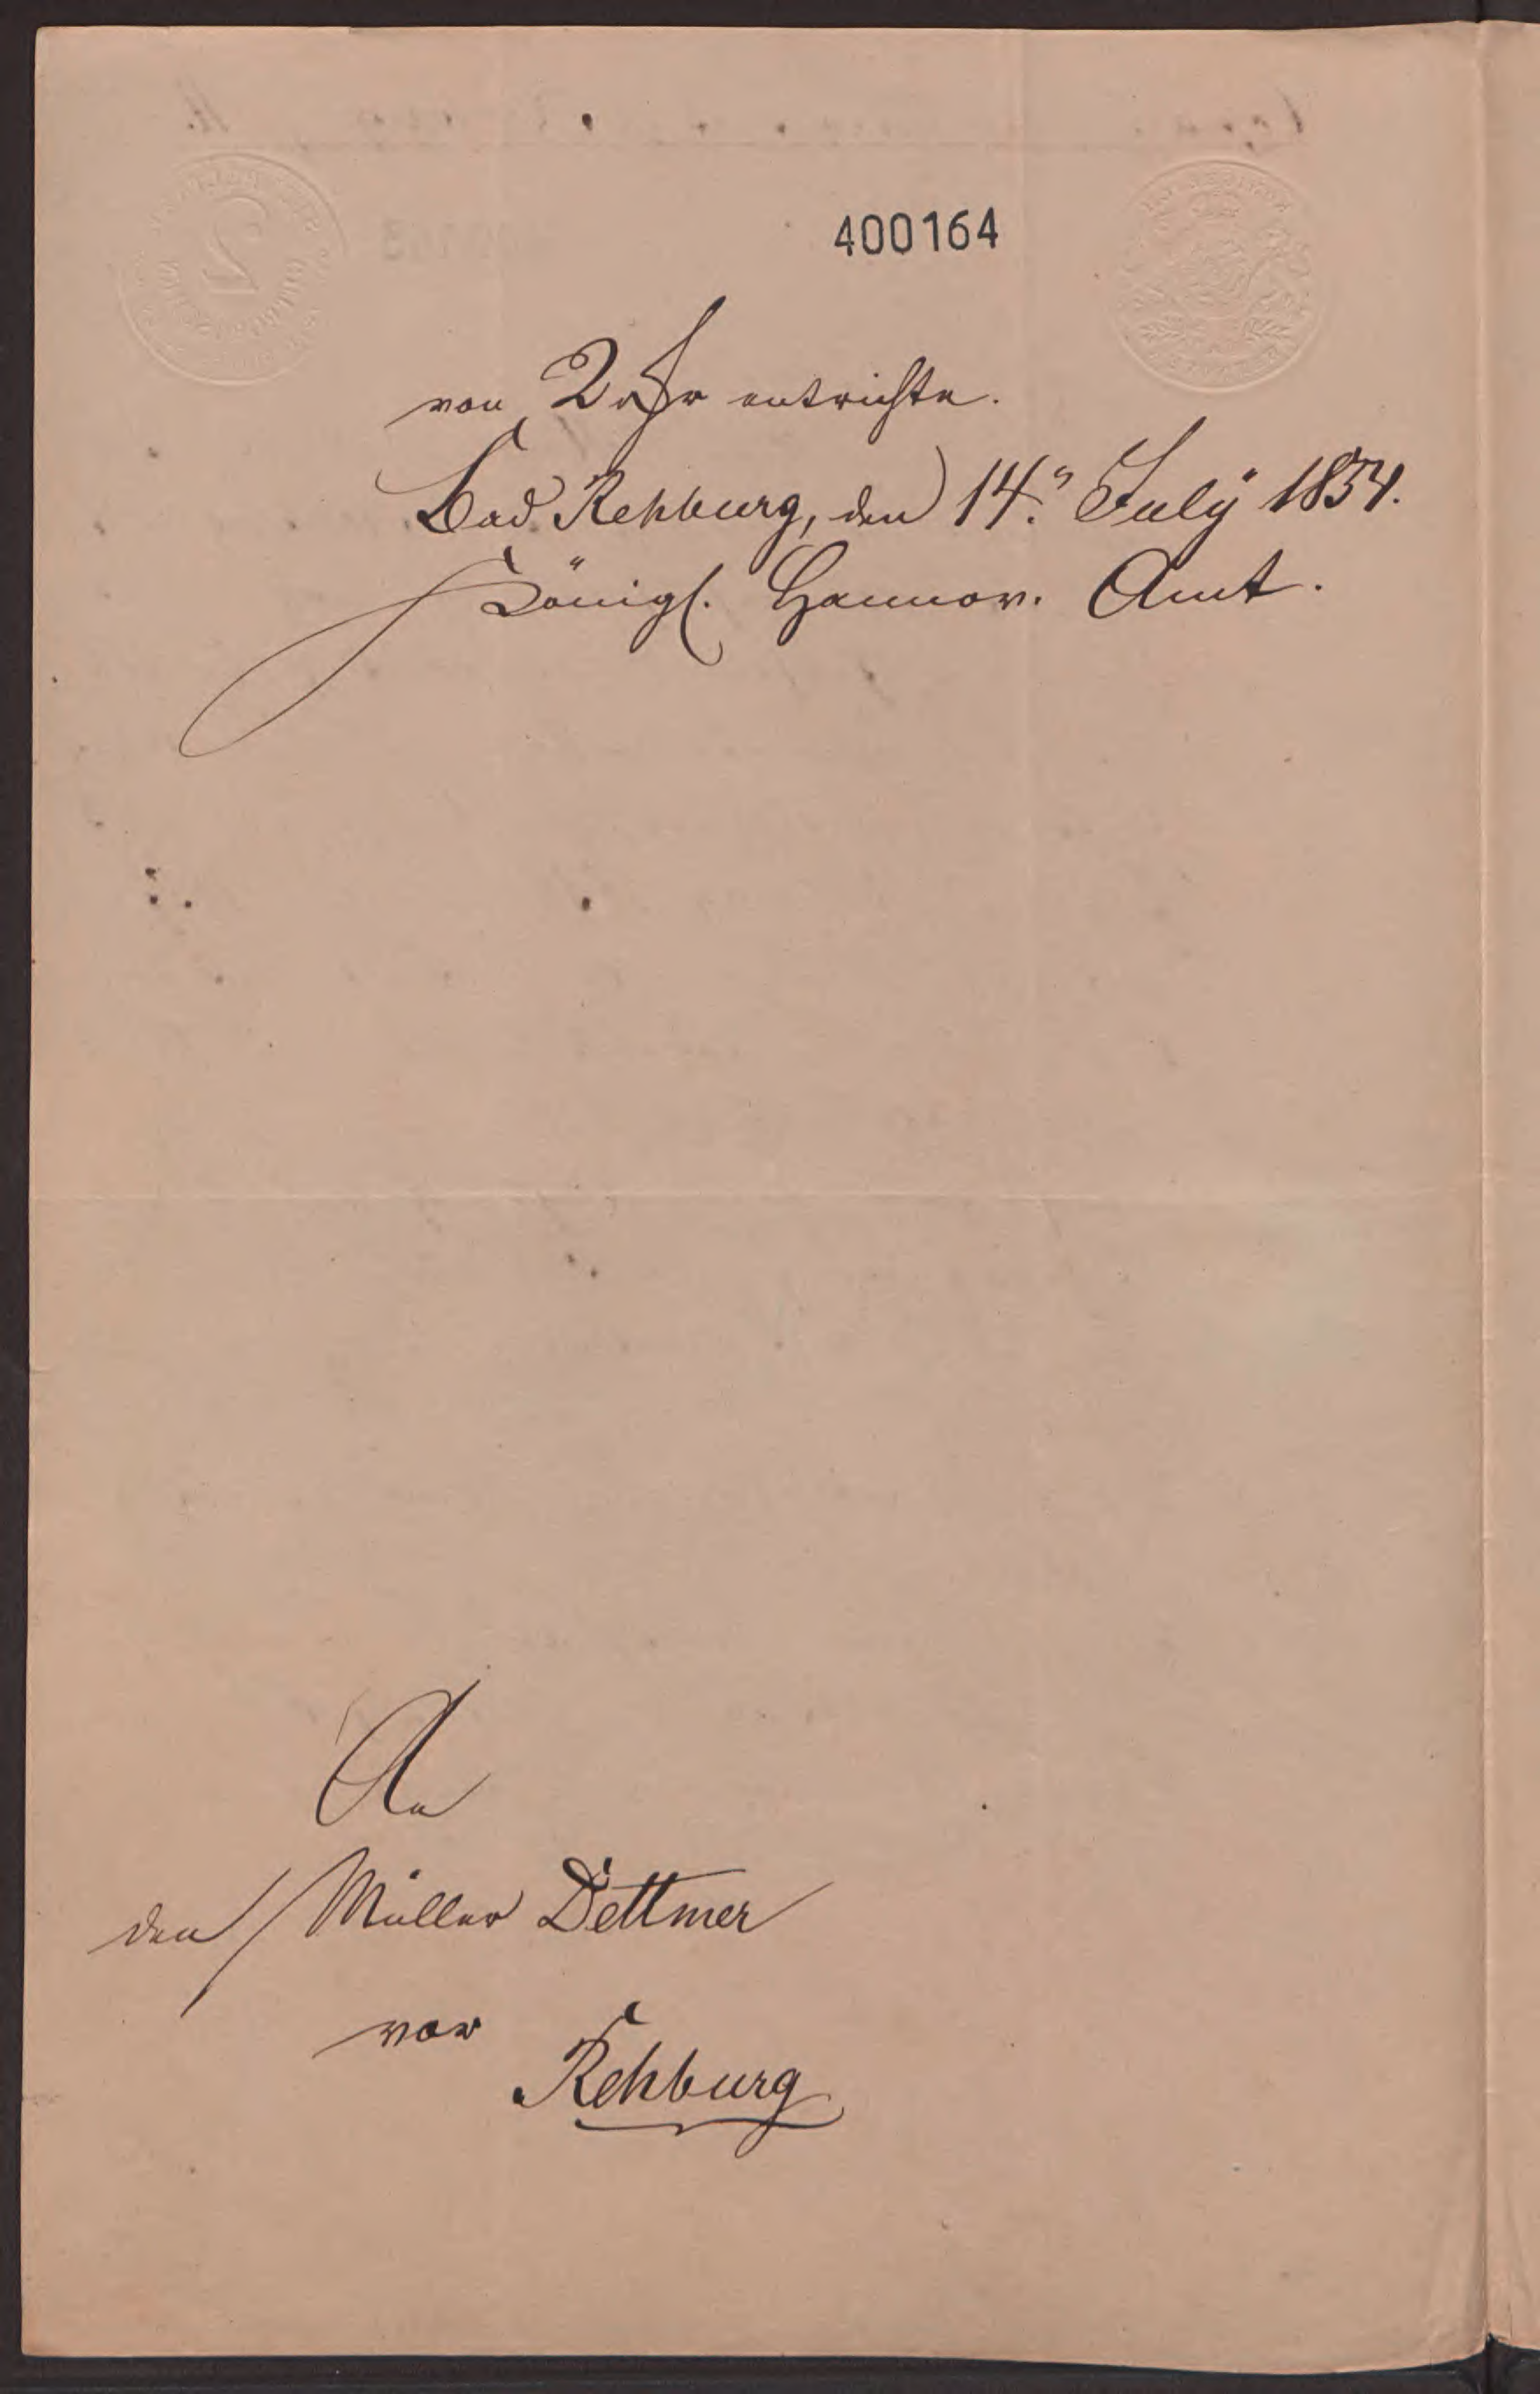 400164
von 2 rthlr entrichte.
Bad Rehburg, den 14. July 1854.
Königl. Hannov. Amt.
An
den Müller Dettmer
vor
Rehburg